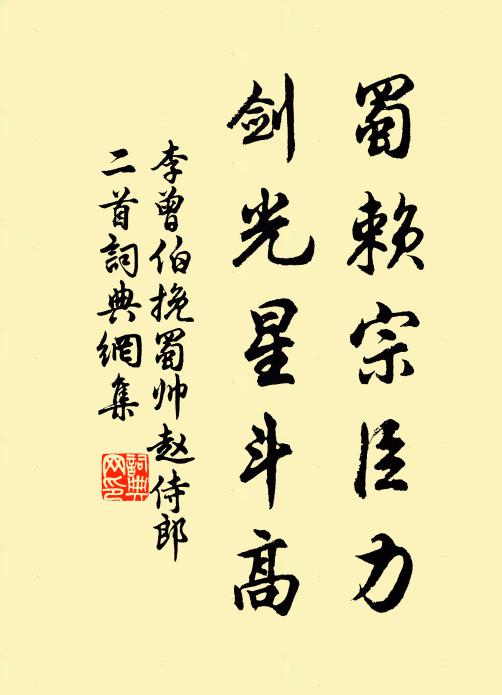 蜀赖宗臣力
剑光星斗高
李曾伯挽蜀帅赵侍郎
二首詞典網集
詞典
网印